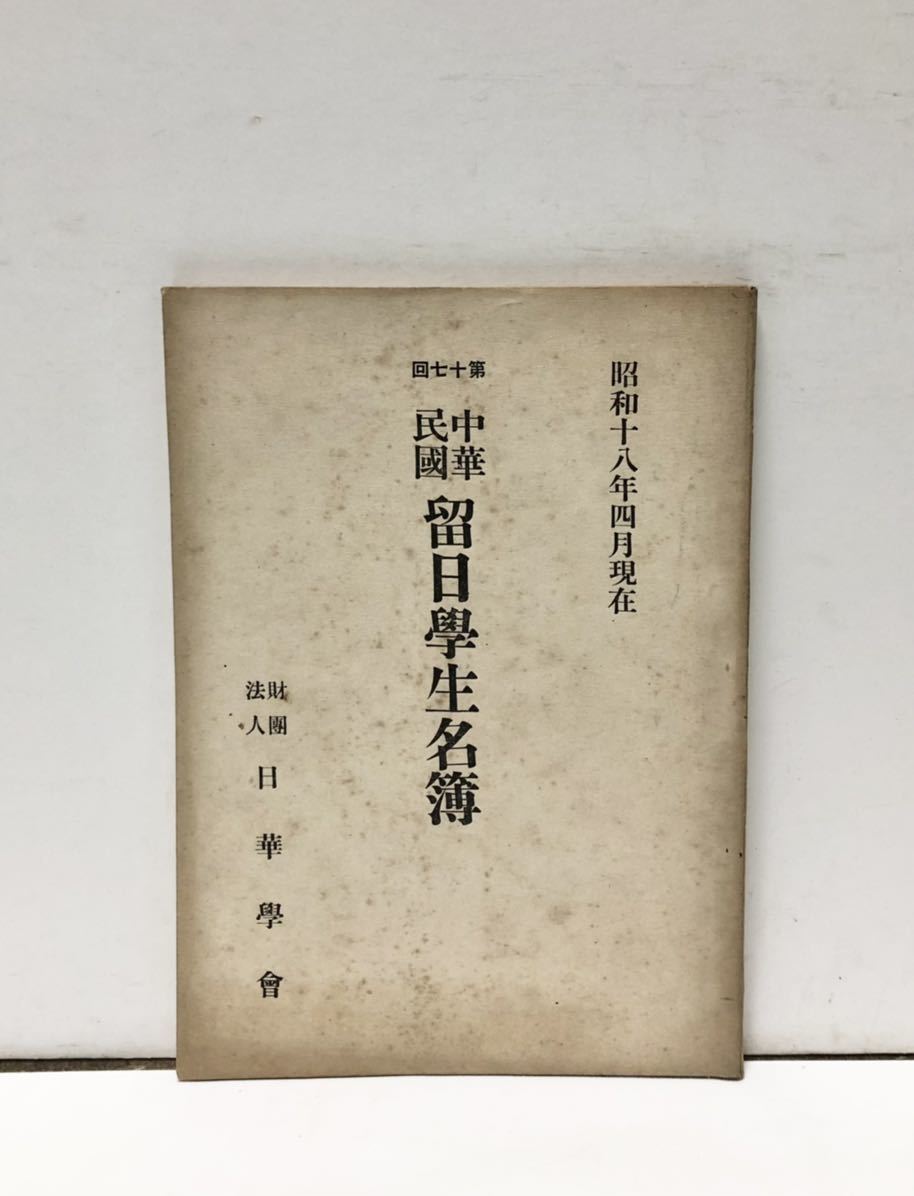 昭和十八年四月現在
第十七回
中華民國
留日學生名簿
財團法人
日華學會